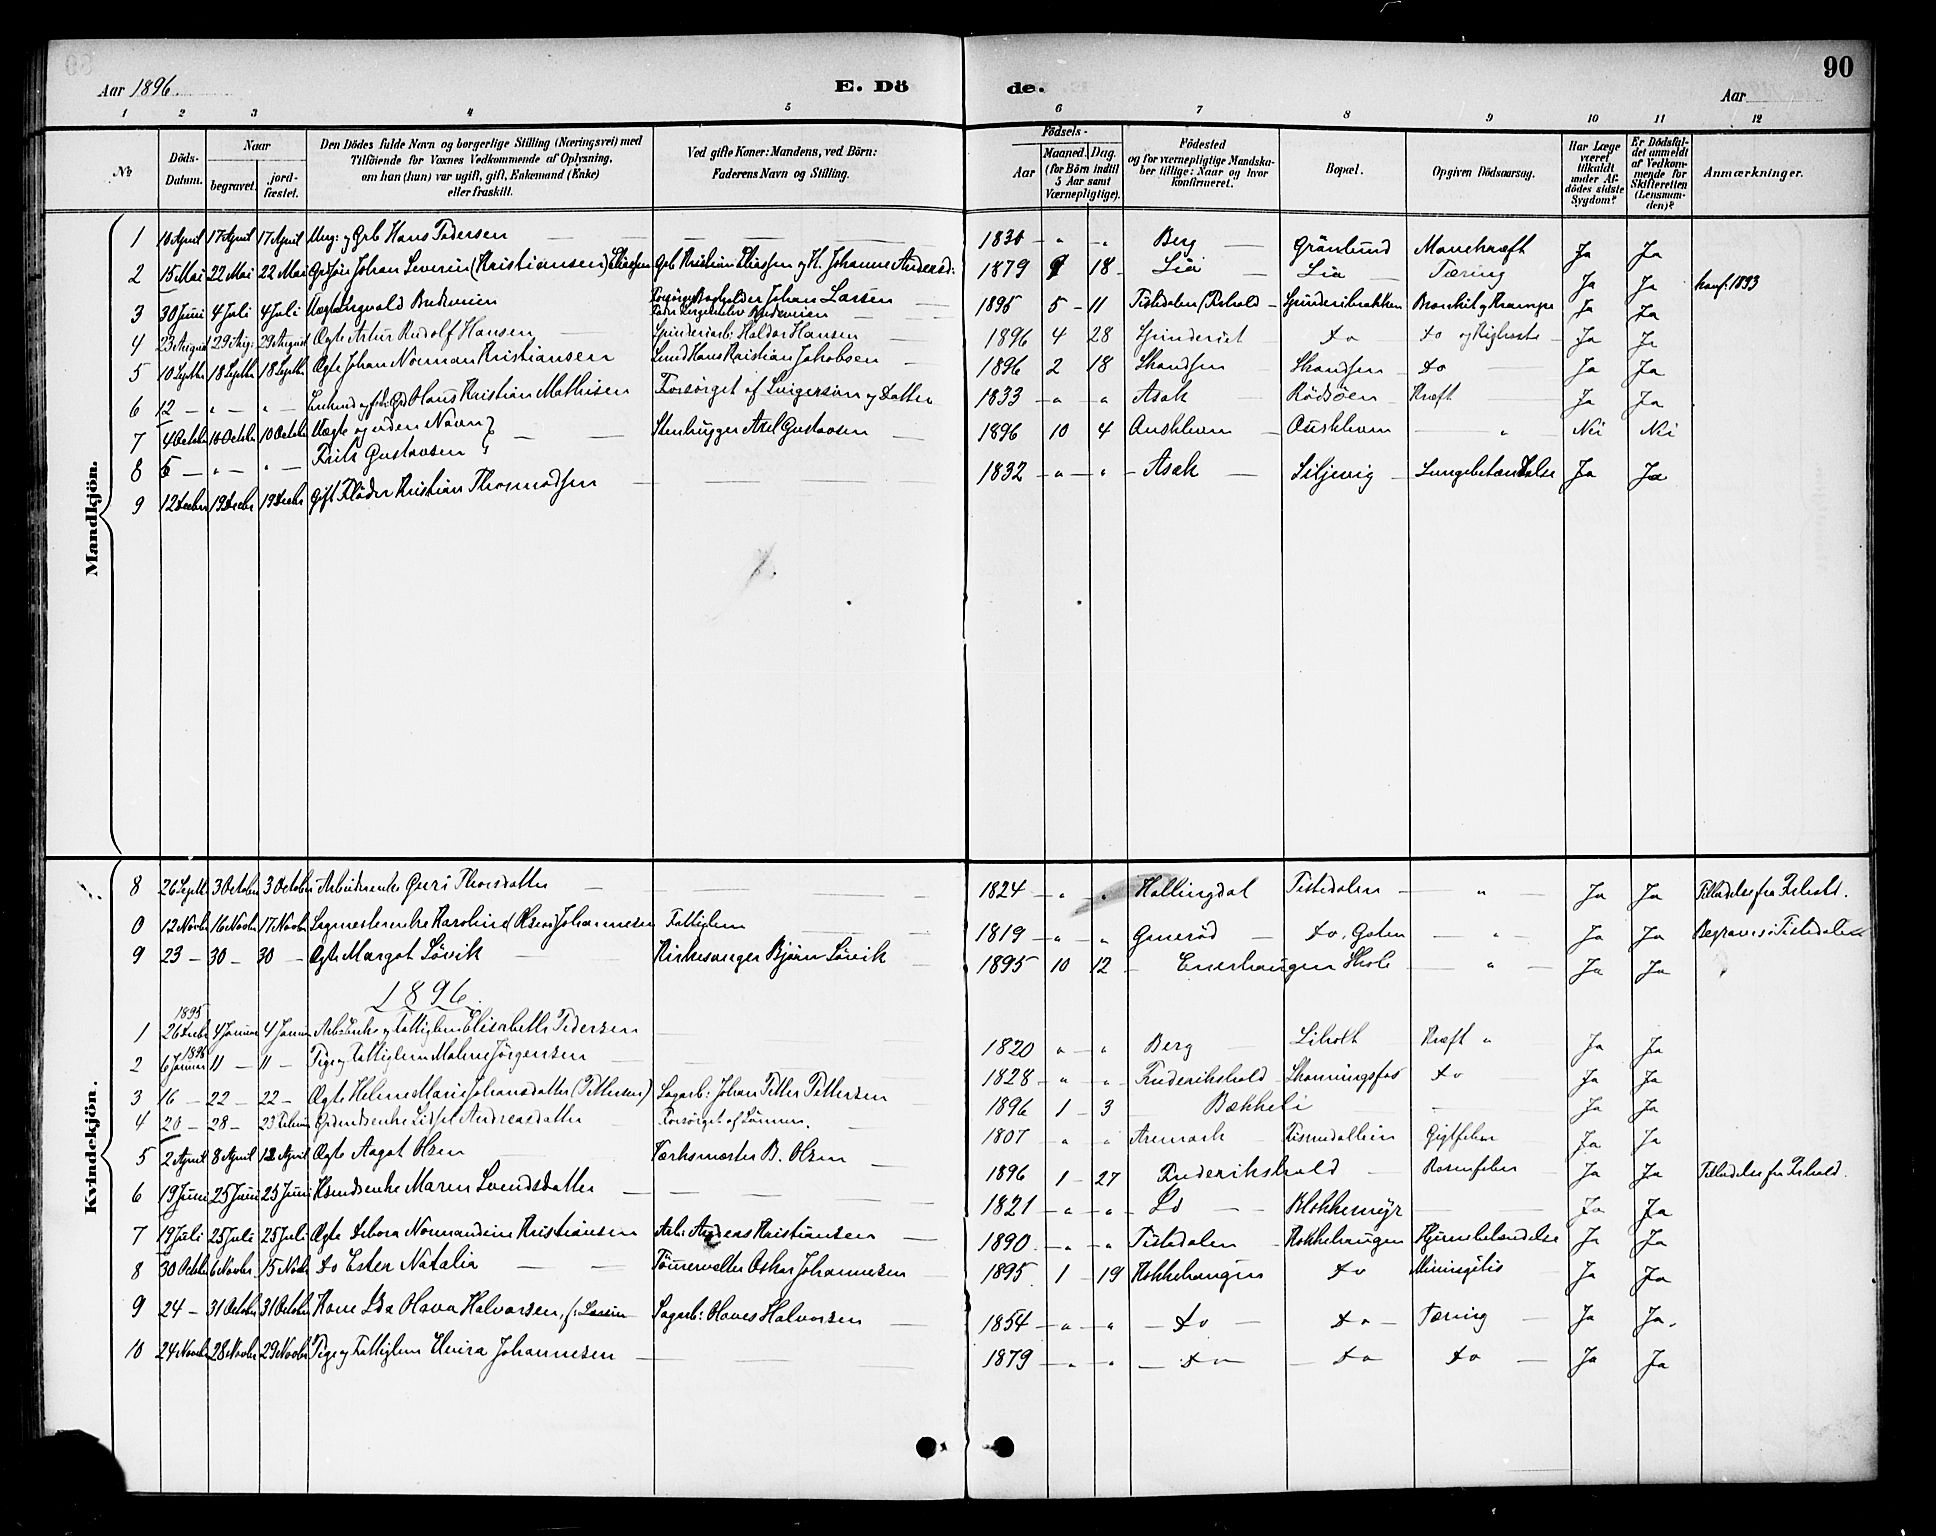 90
Aar 1896.
E. Döde.
Aar
1 2 3 4 5 6 7 8 9 10 11 12
No
Döds-Datum.
Naar
begravet.
jordfæstet.
Den Dödes fulde Navn og borgerlige Stilling (Næringsvei) med
Tilföiende for Voxnes Vedkommende af Oplysning,
om han (hun) var ugift, gift, Enkemand (Enke)
eller fraskilt.
Ved gifte Koner: Mandens, ved Börn:
Faderens Navn og Stilling.
Födsels-
Aar
Maaned. Dag.
(for Börn indtil
5 Aar samt
Værnepligtige).
Födested
og for værnepligtige Mandska-
ber tillige: Naar og hvor
konfirmeret.
Bopæl.
Opgiven Dödsaarsag.
Har Læge
været
tilkaldt
under Af-
dödes sidste
Sygdom?
Er Dödsfal-
det anmeldt
af Vedkom-
mende for
Skifteretten
(Lensman-
den)?
Anmærkninger.
Mandkjön.
1 10 April 17 April 17 April Ung: og Grb Hans Pedersen — — 1830 — " — " Berg — Grönlund Mavekræft Ja Ja
2 15 Mai 22 Mai 22 Mai Johan Severin (Kristiansen) Eliassen Grb Kristian Eliassen og H. Johanne Andersd: 1879 9 18 Lia — Lia — Tæring Ja Ja konf: 1893
3 30 Juni 4 Juli 4 Juli Uægte Ingvald Johan Larsen 1895 5 — 11 Tistedalen — Spinderibrakken Bronkit og Krampe Ja Ja
4 23 August 29 Aug: 29 August Ægte Artur Rudolf Hansen — Spinderiarb: Haldor Hansen — 1896 4 28 Spinderiet do do Ja Ja
5 10 Septbr 18 Septbr 18 Septbr Ægte Johan Norman Kristiansen Hans Kristian Jakobsen — 1896 2 18 Skandsen — Skandsen — do Ja Ja
6 12 — " — " — Hans Kristian Mathisen Forsörget af Svigersön og Datter 1833 — " " Asak — Rödsöen — Kræft Ja Ja
7 4 Octobr 10 Octobr 10 Octobr Uægte og uden Navn — Stenhugger Axel Gustavsen — 1896 10 4 — — " Nei Nei
8 5 — " — " — Frits Gustavsen
9 12 Decbr 19 Decbr 19 Decbr Gift Flöder Kristian Thormodsen — — 1832 — " — " — Asak — Liljevig — Lungebetændelse Ja Ja
Kvindekjön.
8 26 Septbr 3 October 3 October Arbeiderenke Guri Thorsdatter — — 1824 — " — " Hallingdal Tistedalen — " — Ja Ja Tilladelse fra Frhald.
0 12 Novbr 16 Novbr 17 Novbr Sagmesterenke Karoline (Olsen) Johannesen Fattiglem — 1819 — " — " — do, Gaten — " — Ja Ja Begraves i Tistedalen
9 23 — 30 — 30 — Ægte Margot Lövik — Kirkesanger Björn Lövik — 1895 10 12 — Enerhaugen Skole — " — Ja Ja
1896.
1 1895 26 Decbr 4 Januar 4 Januar Arb.Enke og Fattiglem Elisabeth Pedersen — 1820 — " — " Berg — Liholt Kræft " Ja Ja
2 1896 6 Januar 11 — 11 — Pige og Fattiglem Maline Jörgensen — 1828 — " — " — Frederikshald — Skonningsfos do Ja Ja
3 16 — 22 — 22 — Ægte Helene Marie Johansdatter (Pettersen) Sagarb: Johan Petter Pettersen 1896 1 — 3 Bækkeli — Ja Ja
4 20 — 28 — 23 Februar Lisbet Andreasdatter Forsörget af Sönnen. 1807 " " Aremark — Gigtfeber Ja Ja
5 2 April 8 April 12 April Ægte Aagot Olsen — Værksmester B. Olsen — 1896 1 — 27 Frederikshald — Rosenfeber — Ja Ja Tilladelse fra Frhald.
6 19 Juni 25 Juni 25 Juni Husmandsenke Maren Svendsdatter — — 1821 — " — " — Id — Blokkemyr — Ja Ja
7 19 Juli 25 Juli 25 Juli Ægte Debora Normandine Kristiansen Arb: Andreas Kristiansen — 1890 — " — " Tistedalen — Kokkehaugen Hjernebetændelse Ja Ja
8 30 Octbr 6 Novbr. 15 Novbr do Ester Natalia — — Tömervælter Oskar Johannesen — 1895 1 — 19 Kokkehaugen do Miningitis — Ja Ja
9 24 — 31 Octobr 31 Octobr Kone Ida Olava Halvorsen, f: Larsen Sagarb: Olaves Halvorsen — 1854 — " — " — do — do — Tæring — Ja Ja.
10 24 Novbr 28 Novbr 29 Novbr Pige og Fattiglem Elvira Johannesen — — 1879 — " — " — do — do do — Ja Ja